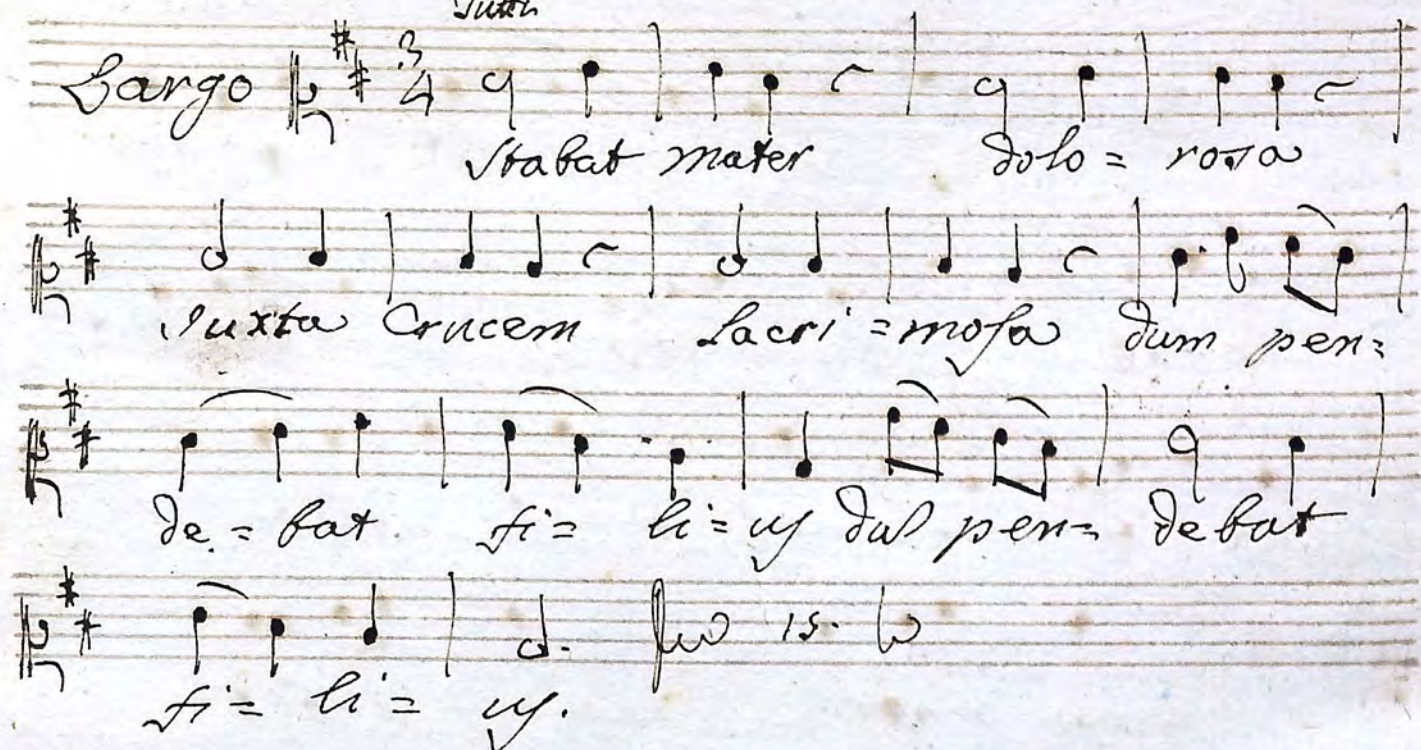 Tutti
Largo 3/4
Stabat mater dolo = rosa
Iuxta Crucem Lacri = mosa dum pen=
de = bat fi = li = us dum pen= debat
15.
fi = li = us.